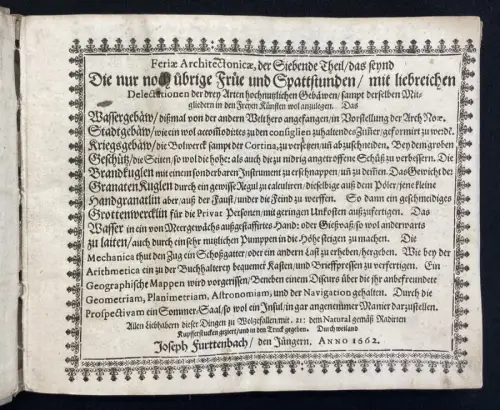 Feriæ Architectonicæ, der Siebende Theil / das seynd
Die nur noch übrige Früe und Spattstunden / mit liebreichen
Delectationen der drey Arten hochnutzlichen Gebäwen / sampt derselben Mit-
gliedern in den Freyen Künsten wol anzulegen. Das
Wassergebäw / dißmal von der andern Welt hero angefangen / in Vorstellung der Arch Noæ.
Stadtgebäw / wie ein wol accomodirtes zu den consiglien zuhaltendes Zimer / geformirt zu werdē.
Kriegsgebäw / die Bolwerck sampt der Cortina, zu versetzen / uñ abzuschneiden. Bey dem groben
Geschütz / die Seiten / so wol die hohe: als auch die zu nidrig angetroffene Schüß zu verbessern. Die
Brandkuglen mit einem sonderbaren Instrument zu erschnappen / uñ zu demen. Das Gewicht der
Granaten Kuglen durch ein gewisse Regul zu calculiren / dieselbige auß dem Pöler / jene kleine
Handgranatlin aber / auß der Faust / under die Feind zu werffen. So dann ein geschmeidiges
Grottenwercklin für die Privat Personen / mit geringen Unkosten außzufertigen. Das
Wasser in ein von Meergewächs außgestaffirtes Hand: oder Gießvaß / so wol anderwarts
zu laiten / auch durch ein sehr nutzlichen Pumppen in die Höhe steigen zu machen. Die
Mechanica thut den Zug ein Schoßgatter / oder ein andern Last zu erheben / hergeben. Wie bey der
Arithmetica ein zu der Buchhalterey bequemer Kasten / und Brieffpressen zu verfertigen. Ein
Geographische Mappen wird vorgerissen / Beneben einem Discurs über die ihr anbefreundete
Geometriam, Planimetriam, Astronomiam, und der Navigation gehalten. Durch die
Prospectivam ein Sommer-Saal / so wol ein Insul / in gar angenemer Manier darzustellen.
Allen Liebhabern dieser Dingen zu Wolgefallen / mit. 21: dem Natural gemäß Radirten
Kupfferstucken geziert / und in den Truck gegeben. Durch weiland
Joseph Furttenbach / den Jüngern. ANNO 1662.